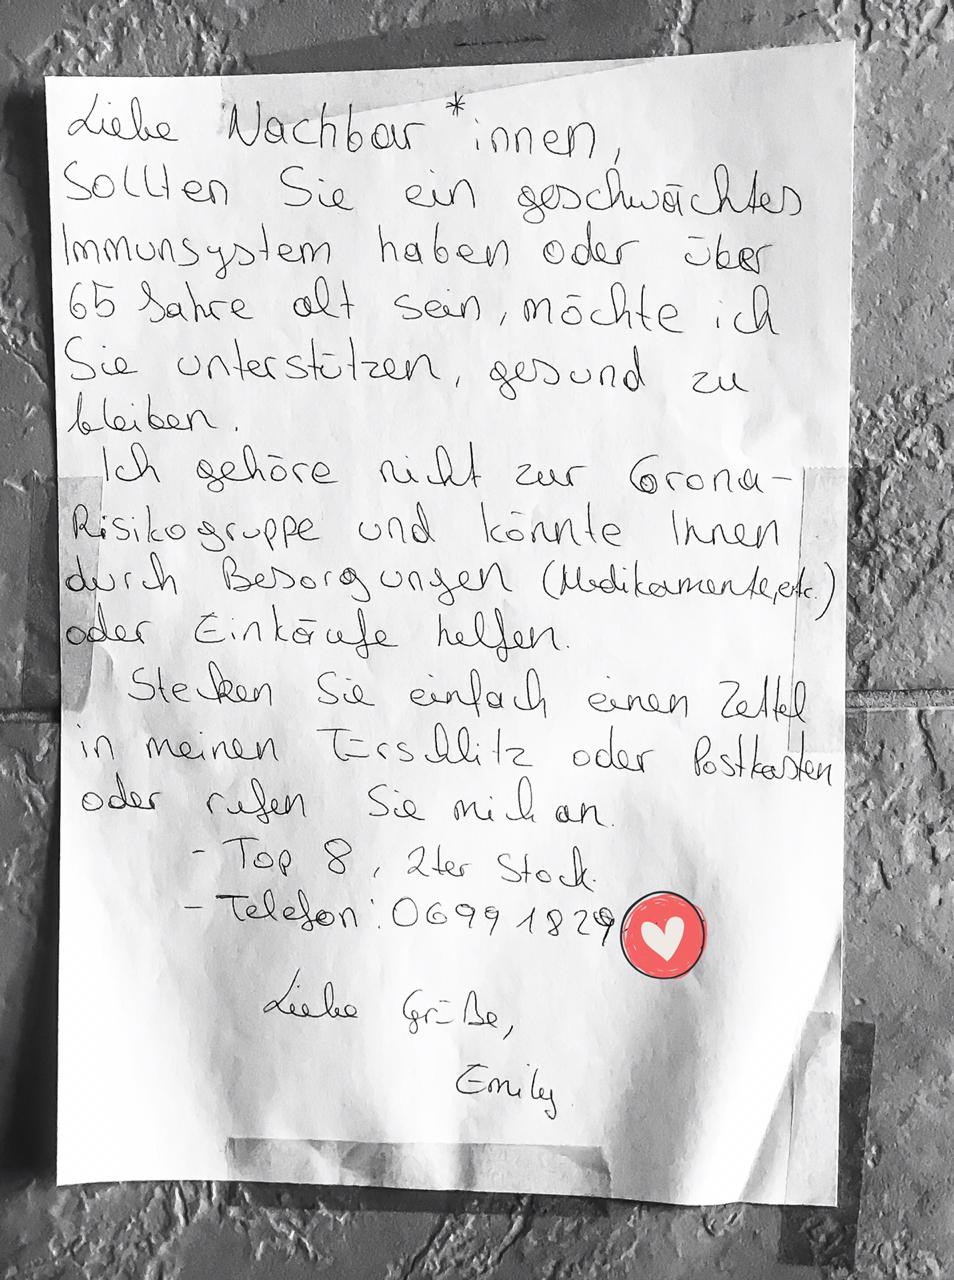 Liebe Nachbar*innen,
Sollten Sie ein geschwächtes
Immunsystem haben oder über
65 Jahre alt sein, möchte ich
Sie unterstützen, gesund zu
bleiben.
Ich gehöre nicht zur Corona-
Risikogruppe und könnte Ihnen
durch Besorgungen (Medikamente, etc.)
oder Einkäufe helfen.
Stecken Sie einfach einen Zettel
in meinen Türschlitz oder Postkasten
oder rufen Sie mich an.
- Top 8, 2ter Stock.
- Telefon: 0699 1829
Liebe Grüße,
Emily